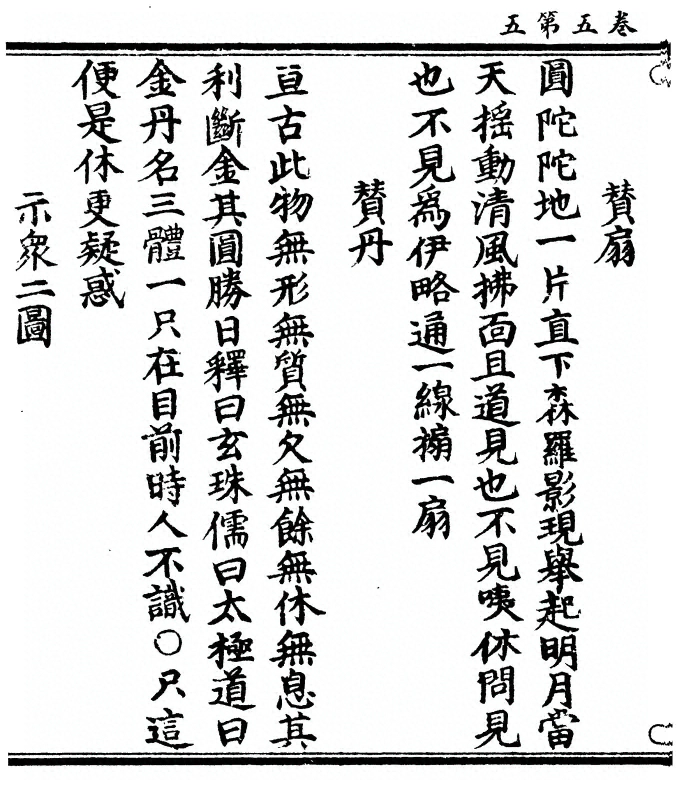 卷五第五
贊扇
圓陀陀地一片直下森羅影現舉起明月當
天搖動清風拂面且道見也不見咦休問見
也不見為伊略通一線搧一扇
贊丹
亘古此物無形無質無欠無餘無休無息其
利斷金其圓勝日釋曰玄珠儒曰太極道曰
金丹名三體一只在目前時人不識〇只這
便是休更疑惑
示眾二圖